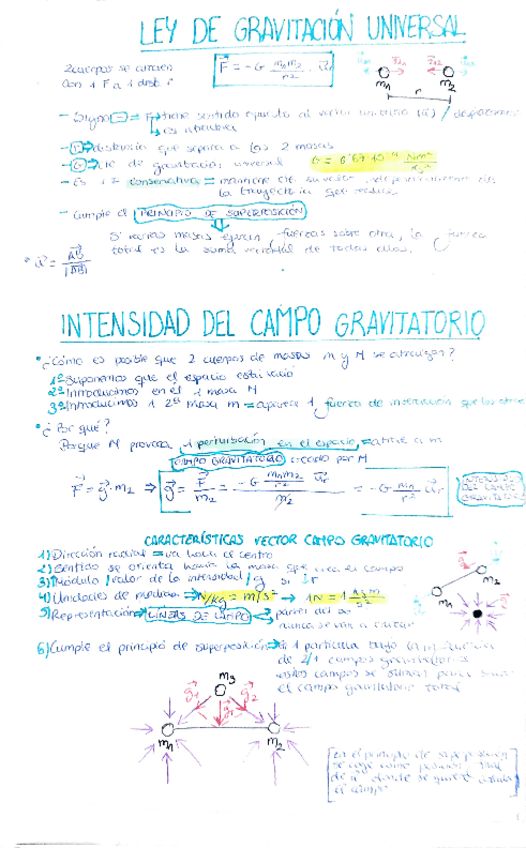 LEY DE GRAVITACIÓN UNIVERSAL
2 cuerpos se atraen
con 1 F a 1 dist. r
F = -G m₁m₂/r² · u
m₁ m₂
r
- Signo - = F tiene sentido opuesto al vector unitario
es atractiva
- r = distancia que separa a las 2 masas
- G = cte de gravitación universal G = 6'67·10⁻¹¹ Nm²/kg²
- Es 1 F conservativa = mantiene cte su
la trayectoria que realice
- Cumple el PRINCIPIO DE SUPERPOSICIÓN
Si varias masas ejercen fuerzas sobre otra, la fuerza
total es la suma vectorial de todas ellas.
* u = AB/|AB|
INTENSIDAD DEL CAMPO GRAVITATORIO
* ¿Cómo es posible que 2 cuerpos de masas m y M se atraigan?
1º Suponemos que el espacio está vacío
2º Introducimos en él 1 masa M
3º Introducimos 1 2ª masa m = aparece 1 fuerza de interacción que los atrae
* ¿Por qué?
Porque M provoca 1 perturbación en el espacio = atrae a m
CAMPO GRAVITATORIO creado por M
F = g·m₂ ⇒ g = F/m₂ = -G m₁m₂/r² u_r / m₂ = -G m₁/r² u_r
INTENSIDAD DEL CAMPO GRAVITATORIO
CARACTERÍSTICAS VECTOR CAMPO GRAVITATORIO
1) Dirección radial = va hacia el centro
2) Sentido se orienta hacia la masa que crea el campo
3) Módulo/valor de la intensidad/g si ↓r
4) Unidades de medida → N/kg = m/s² → 1N = 1 kg m/s²
5) Representación → LÍNEAS DE CAMPO
nunca se van a cruzar
m₁ m₂
6) Cumple el principio de superposición = si 1 partícula bajo la influencia
de 2/+ campos gravitatorios
estos campos se suman para
el campo gravitatorio total
m₃
g₁ g₂
m₁ m₂
En el principio de superposición
se coge como
de donde se quiere
el campo